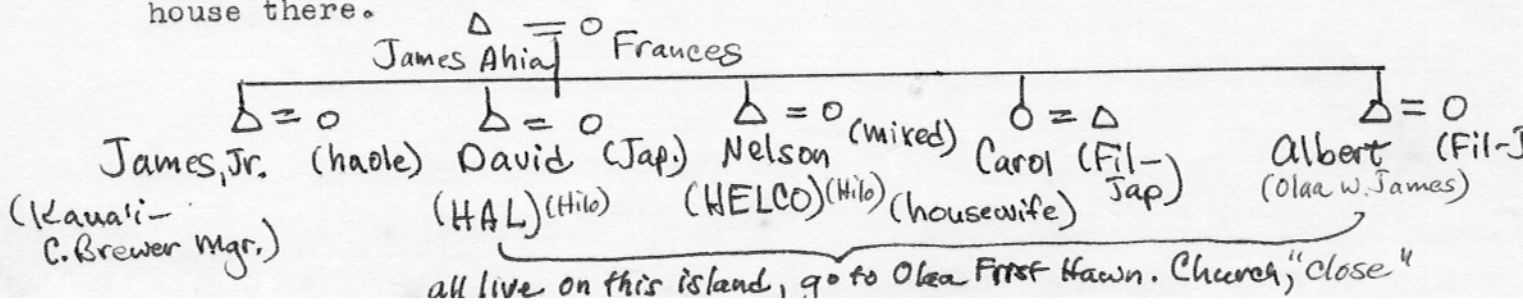 house there.
Δ = O
James Ahia Frances
Δ = O Δ = O Δ = O (mixed) O = Δ Δ = O
James, Jr. (haole) David (Jap.) Nelson Carol (Fil-Jap) Albert (Fil-J
(Kaua'i- C. Brewer Mgr.) (HAL) (Hilo) (HELCO) (Hilo) (housewife) (Olaa w. James)
all live on this island, go to Olaa First Hawn. Church, "close"